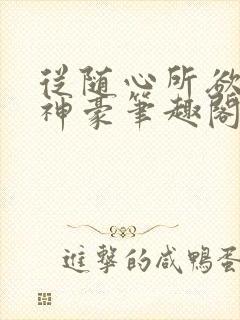 從随心所欲
神豪筆趣閣
進擊的咸鴨蛋